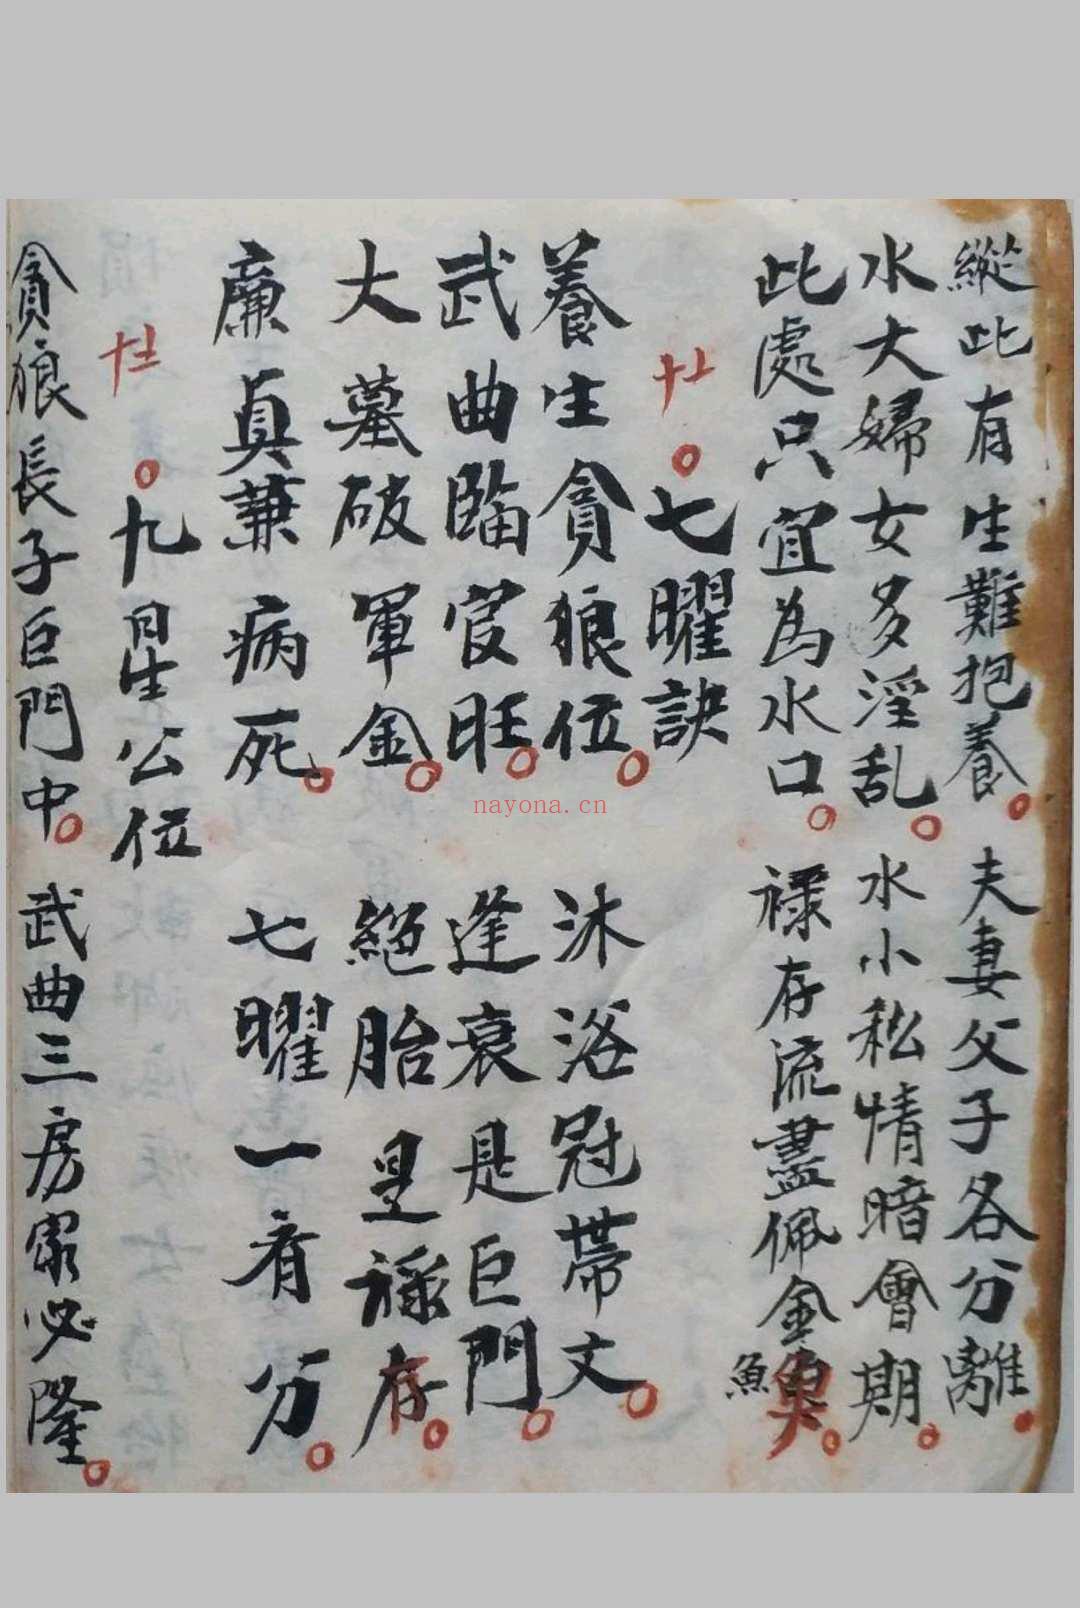 縱此有生難抱養。夫妻父子各分離。
水大婦女多淫乱。水小私情暗會期。
此處只宜為水口。祿存流盡佩金魚。
七曜訣
養生貪狼位。沐浴冠帶文。
武曲臨官旺。逢衰是巨門。
大墓破軍金。絕胎是祿存。
廉貞兼病死。七曜一看分。
九星公位
貪狼長子巨門中。武曲三房家必隆。
nayona.cn